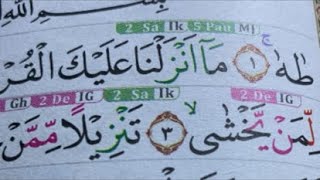 بِسْمِ اللّٰهِ
2 Sa Ik 5 Pau MJ
طٰهٰ ۚ ١ مَآ اَنْزَلْنَا عَلَيْكَ الْقُرْ
Gh 2 De IG 2 Sa Ik 2 De IG
لِّمَنْ يَّخْشٰى ۙ ٣ تَنْزِيْلًا مِّمَّنْ